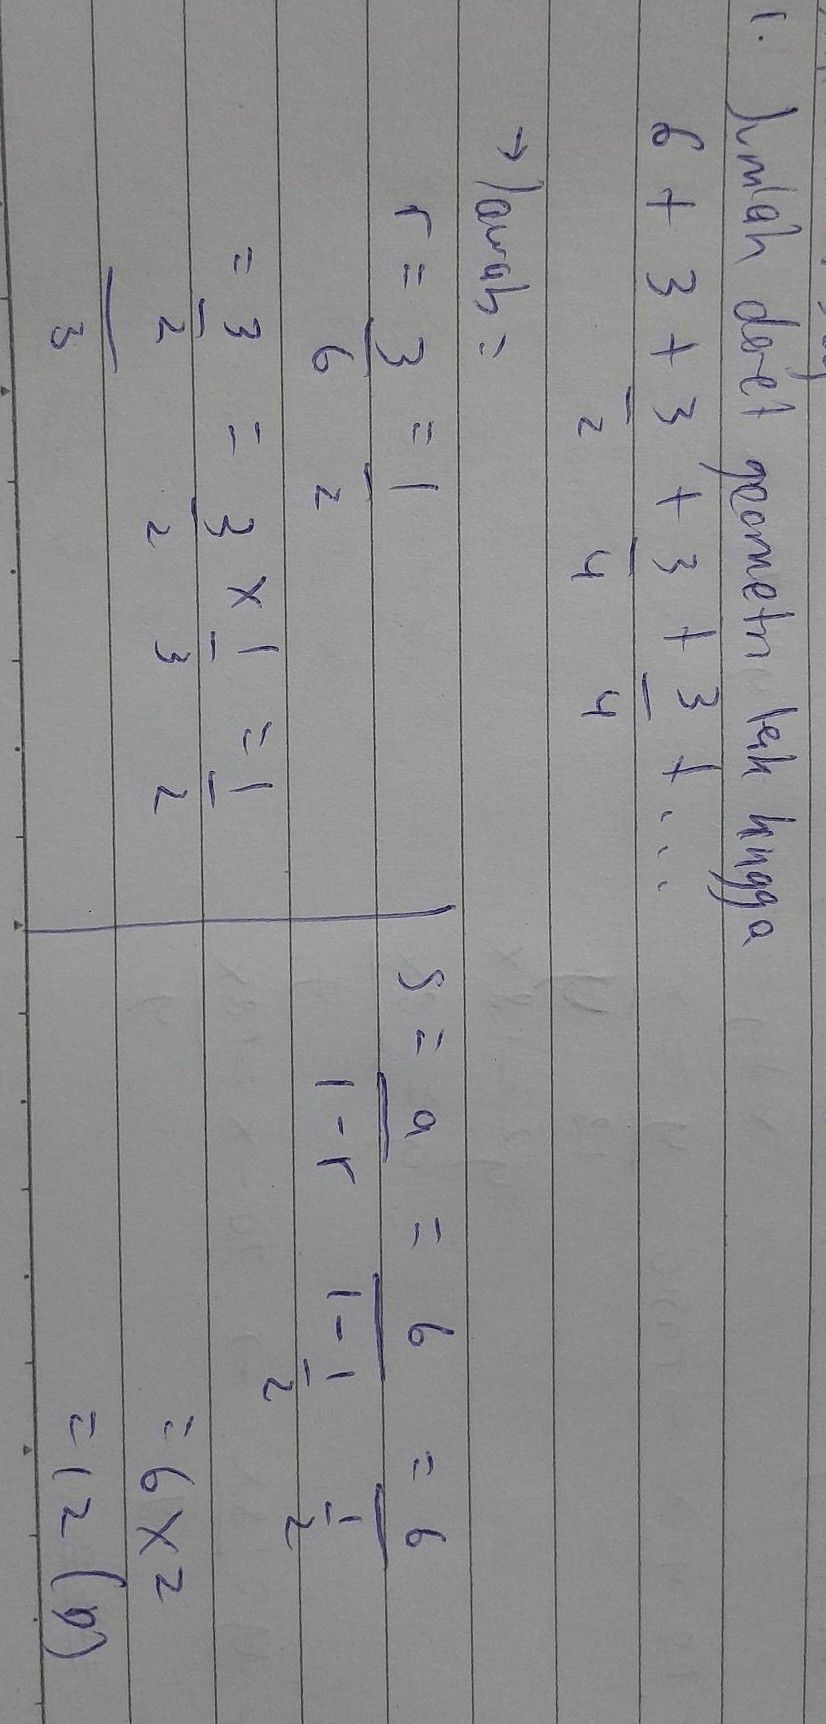 1. Jumlah deret geometri tak hingga
6 + 3 + 3/2 + 3/4 + 3/4 + ...
→ Jawab =
r = 3/6 = 1/2
= 3/2 / 3 = 3/2 × 1/3 = 1/2
S = a/1-r = 6/1-1/2 = 6/1/2
= 6 × 2
= 12